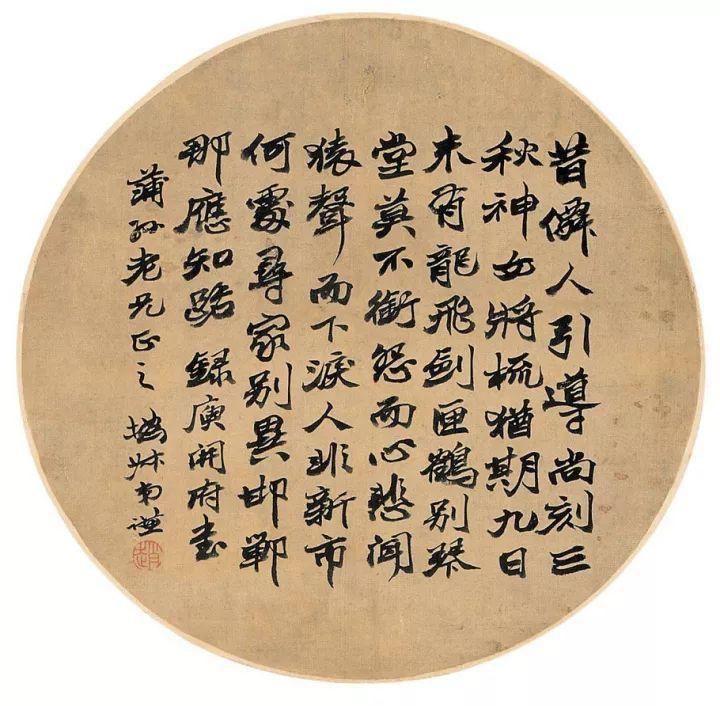 昔僊人引導尚刻三
秋神女將梳猶期九日
未有龍飛劍匣鶴別琴
堂莫不銜怨而心悲聞
猿聲而下淚人非新市
何處尋家別異邯鄲
那應知路 錄庾開府書
蒲孫老兄正之 撝叔弟謙